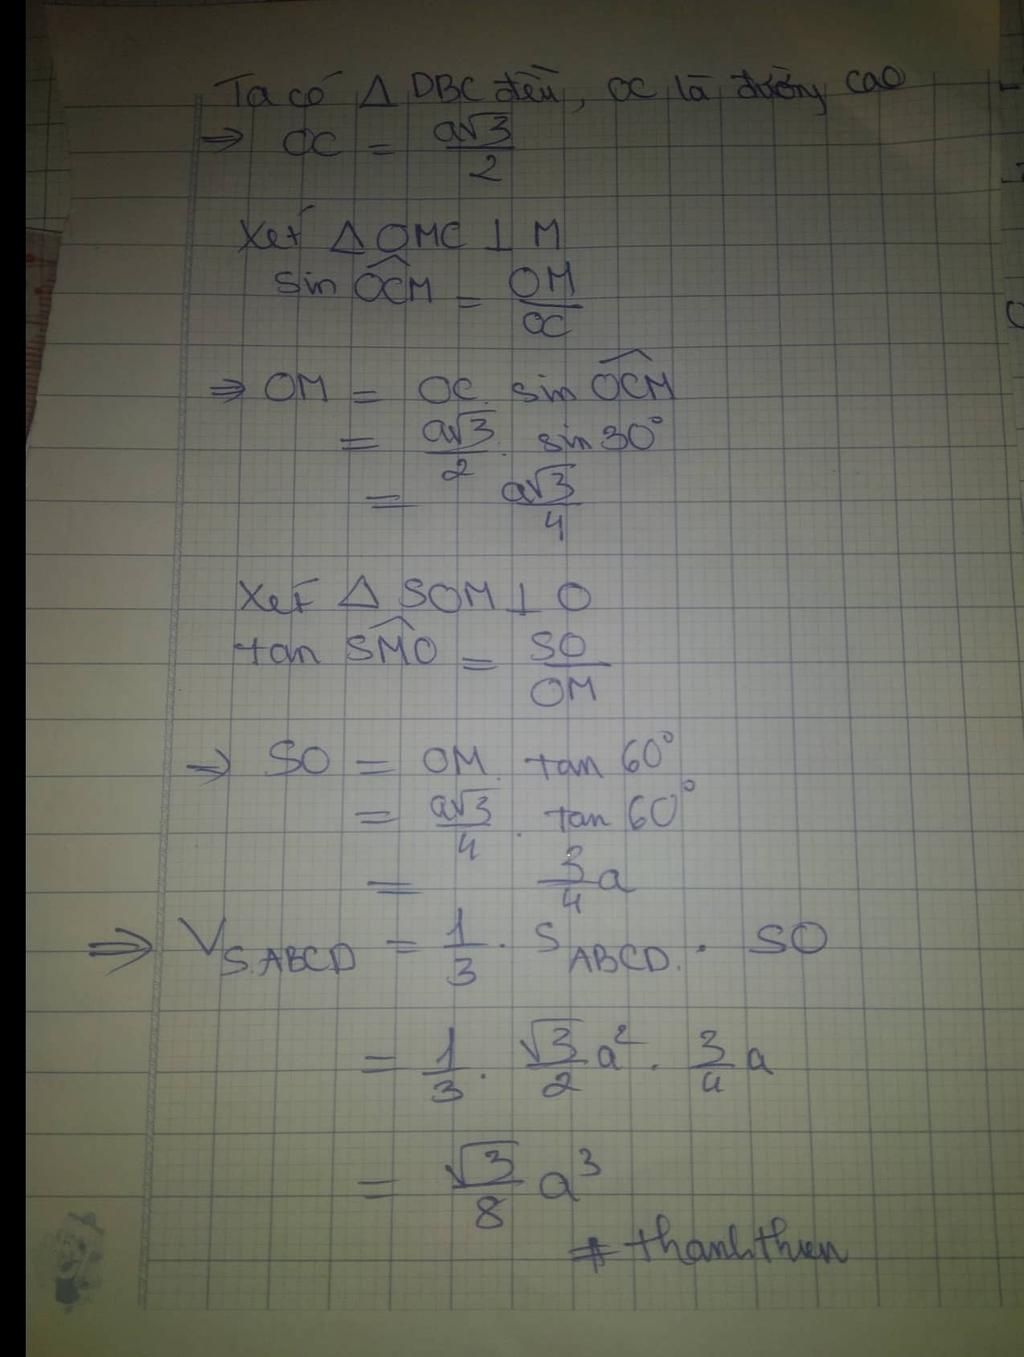 Ta có Δ DBC đều, OC là đường cao
⇒ OC = a√3/2
Xét Δ OMC ⊥ M
sin \widehat{OCM} = OM/OC
⇒ OM = OC. sin \widehat{OCM}
= a√3/2 . sin 30°
= a√3/4
Xét Δ SOM ⊥ O
tan \widehat{SMO} = SO/OM
⇒ SO = OM. tan 60°
= a√3/4 . tan 60°
= 3/4 a
⇒ V_{S.ABCD} = 1/3 . S_{ABCD} . SO
= 1/3 . √3/2 a² . 3/4 a
= √3/8 a³
# thanhthien